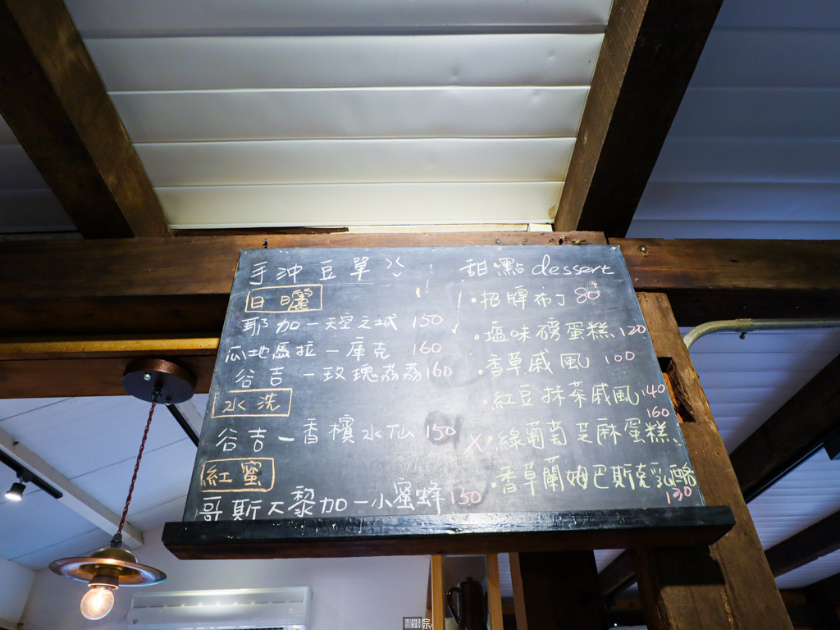 手沖豆單
日曬
耶加－天空之城 150
瓜地馬拉－庫克 160
谷吉－玫瑰荔荔 160
水洗
谷吉－香檳水仙 150
紅蜜
哥斯大黎加－小蜜蜂 150
甜點 dessert
·招牌布丁 80
·塩味磅蛋糕 120
·香草戚風 100
·紅豆抹茶戚風 140
160
X·綠葡萄芝麻蛋糕
·香草蘭姆巴斯克乳酪
130